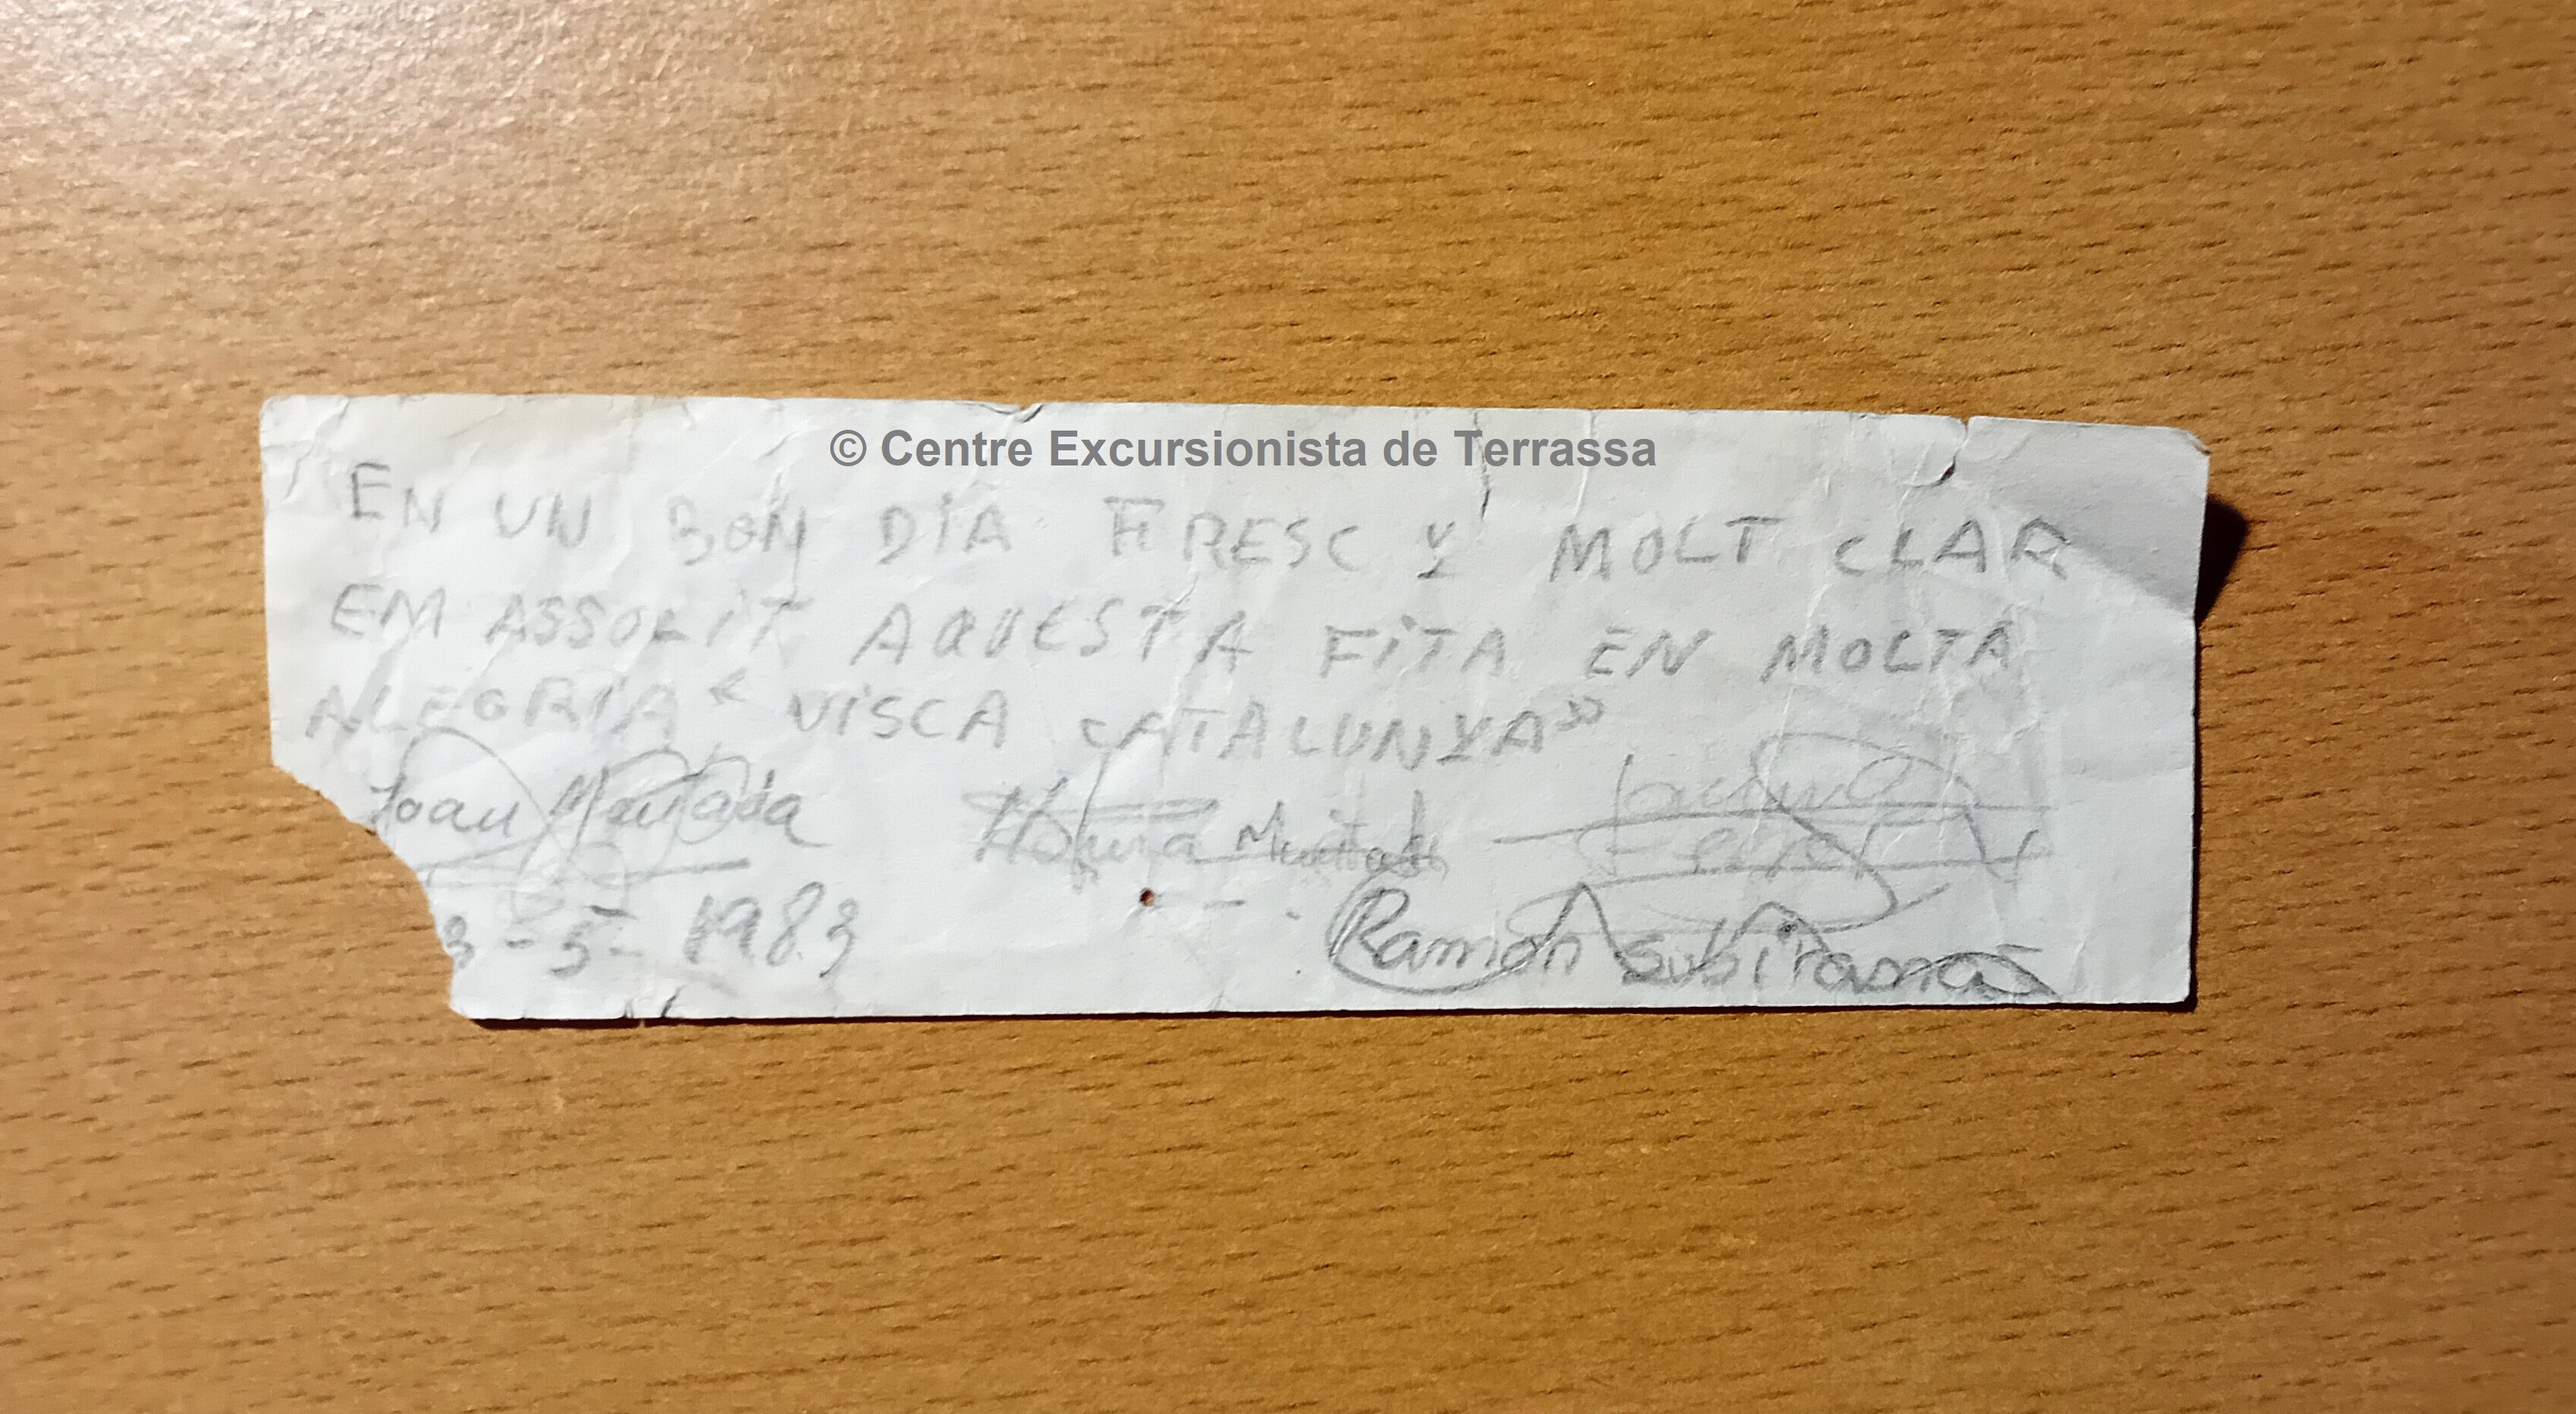 © Centre Excursionista de Terrassa
EN UN BON DIA FRESC Y MOLT CLAR
EM ASSOLIT AQUESTA FITA EN MOLTA
ALEGRIA « VISCA CATALUNYA »
Joan
3-5-1983
Ramon Subirana